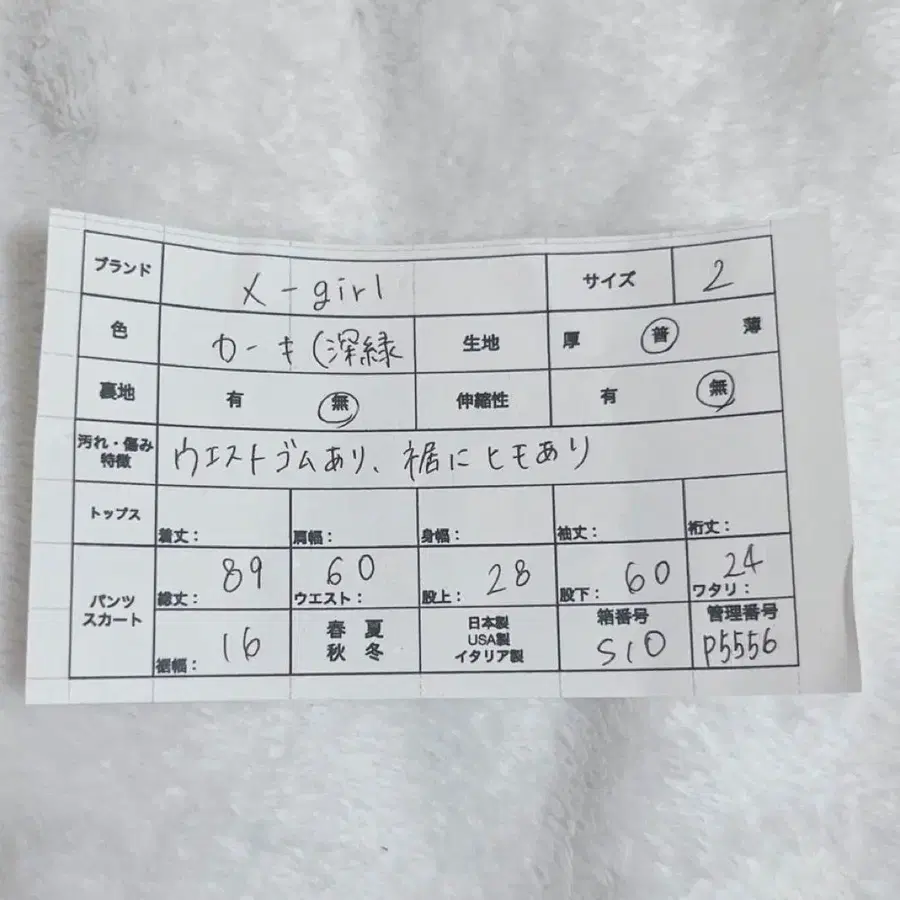 ブランド X-girl サイズ 2
色 カーキ(深緑 生地 厚 普 薄
裏地 有 無 伸縮性 有 無
汚れ・傷み
特徴 ウエストゴムあり、裾にヒモあり
トップス 着丈： 肩幅： 身幅： 袖丈： 裄丈：
パンツ
スカート
総丈： 89 ウエスト： 60 股上： 28 股下： 60 ワタリ： 24
裾幅： 16
春 夏
秋 冬
日本製
USA製
イタリア製
箱番号
S10
管理番号
P5556